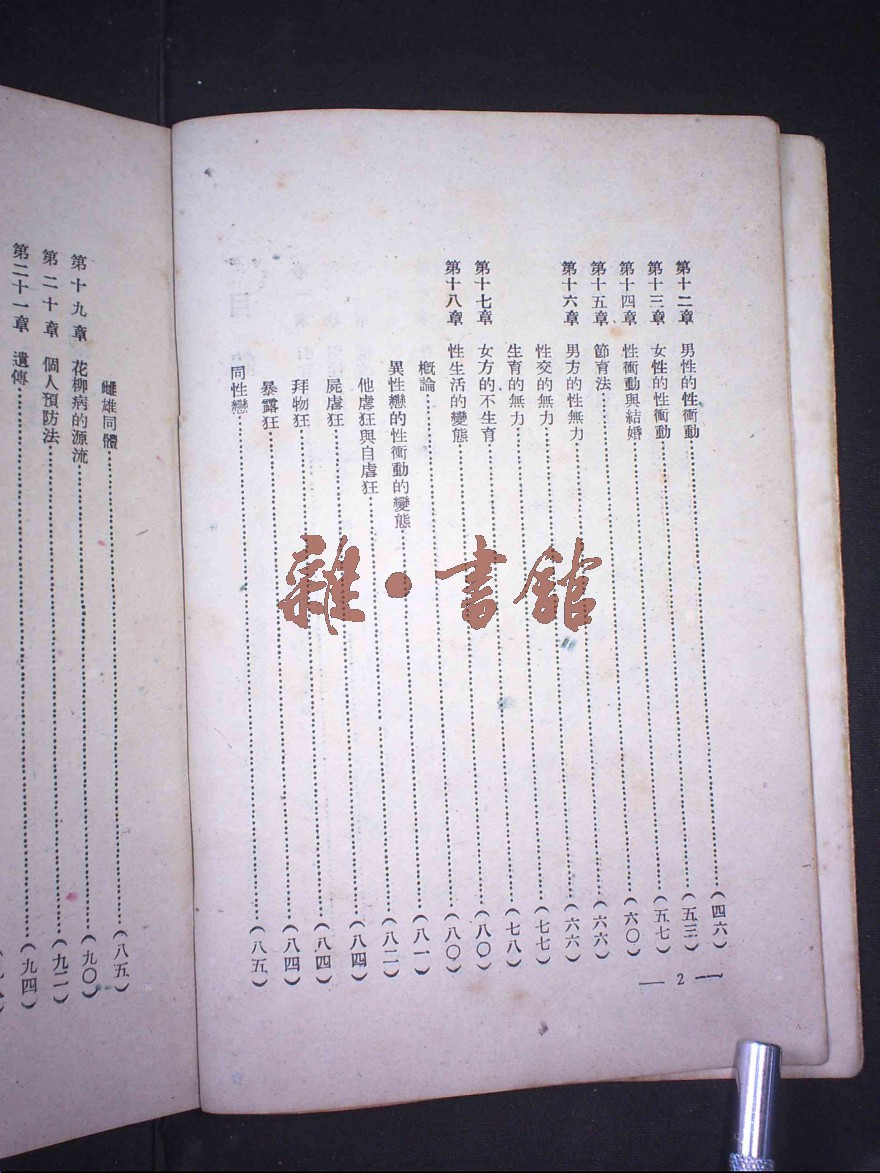 第十二章 男性的性衝動……(四六)
第十三章 女性的性衝動……(五三)
第十四章 性衝動與結婚……(五七)
第十五章 節育法……(六〇)
第十六章 男方的性無力……(六六)
性交的無力……(六六)
生育的無力……(七七)
第十七章 女方的不生育……(七八)
第十八章 性生活的變態……(八〇)
概論……(八〇)
異性戀的性衝動的變態……(八一)
他虐狂與自虐狂……(八二)
屍虐狂……(八四)
拜物狂……(八四)
暴露狂……(八四)
同性戀……(八五)
— 2 —
雌雄同體……(八五)
第十九章 花柳病的源流……(九〇)
第二十章 個人預防法……(九二)
第二十一章 遺傳……(九四)
雜·書館